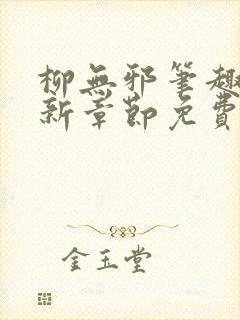 柳無邪筆趣
新章節免費
金玉堂